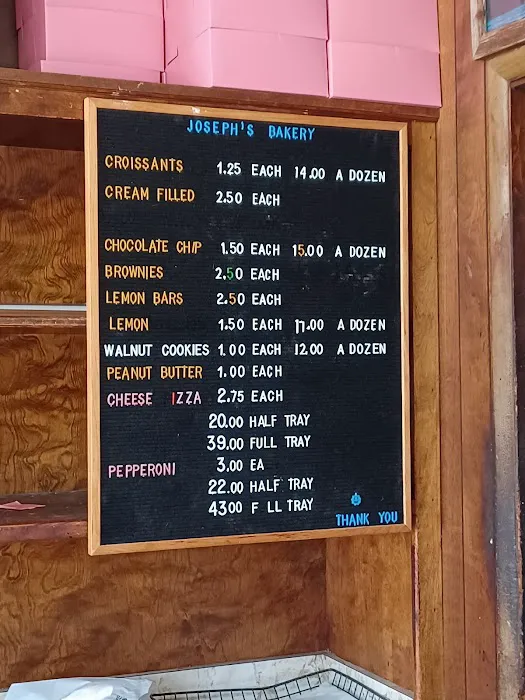 JOSEPH'S BAKERY
CROISSANTS 1.25 EACH 14.00 A DOZEN
CREAM FILLED 2.50 EACH
CHOCOLATE CHIP 1.50 EACH 15.00 A DOZEN
BROWNIES 2.50 EACH
LEMON BARS 2.50 EACH
LEMON 1.50 EACH 17.00 A DOZEN
WALNUT COOKIES 1.00 EACH 12.00 A DOZEN
PEANUT BUTTER 1.00 EACH
CHEESE IZZA 2.75 EACH
20.00 HALF TRAY
39.00 FULL TRAY
PEPPERONI 3.00 EA
22.00 HALF TRAY
4300 F LL TRAY
THANK YOU